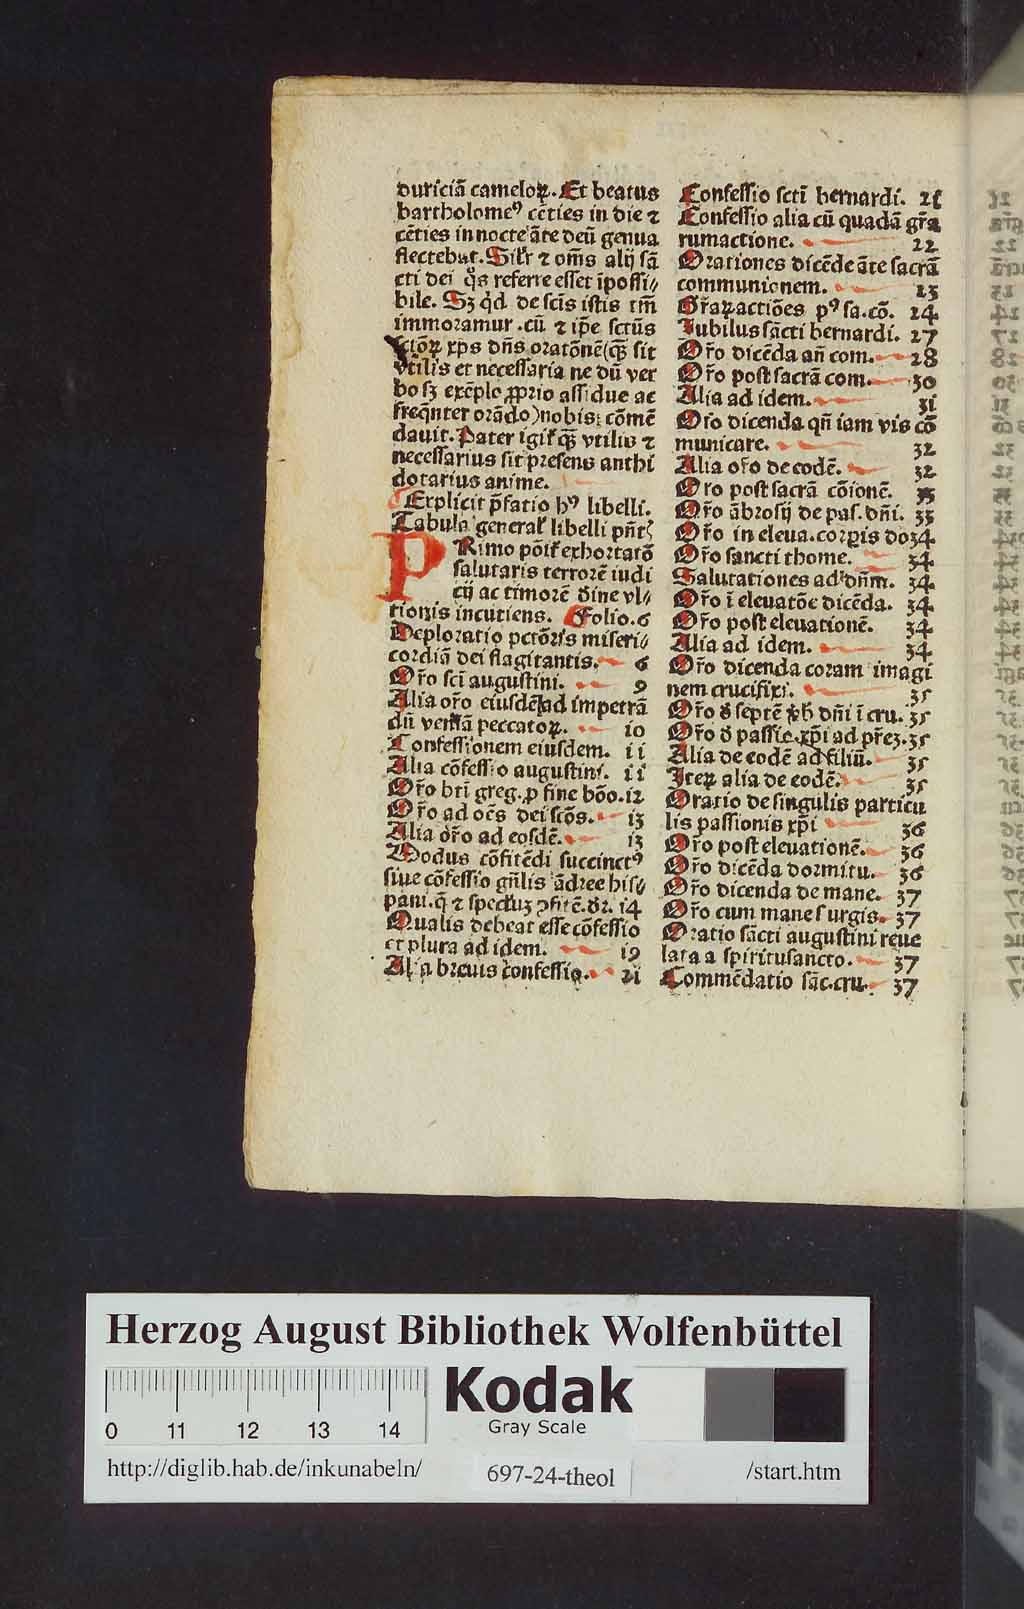 duriciā cameloꝝ. Et beatus
bartholomeꝰ cēties in die ⁊
cēties in nocte āte deū genua
flectebat. Silr̄ ⁊ om̄s alij sā
cti dei q̊s referre esset īpossi⸗
bile. Sꝫ q̇d de scīs istis tm̄
immoramur .cū ⁊ ip̄e sctūs
sctōꝝ xp̄s dn̄s oratōnē (q̄ꝫ sit
vtilis et necessaria ne dū ver
bo sꝫ exēplo ꝓprio assidue ac
freq̄nter orādo) nobis cōmē
dauit. Pater igit̄ q̄ꝫ vtilis ⁊
necessarius sit presens anthi
dotarius anime.
Explicit p̄fatio hꝰ libelli.
Tabula general̄ libelli pn̄tꝭ
PRimo pōit̄ exhortatō
salutaris terrorē iudi
cij ac timorē diuine vl⸗
tionis incutiens. Folio. 6
Deploratio pctōris miseri⸗
cordiā dei flagitantis. 6
Or̄o scī augustini. 9
Alia or̄o eiusdē ad impetrā
dū veniā peccatoꝝ. 10
Confessionem eiusdem. 11
Alia cōfessio augustini. 11
Or̄o bt̄i greg. ꝓ fine bōo. 12
Or̄o ad oēs dei scōs. 13
Alia or̄o ad eosdē. 13
Modus cōfitēdi succinctꝰ
siue cōfessio gn̄lis ādree his⸗
pani. q̄ ⁊ specl̄uꝫ ꝯfitē. dr̄. 14
Qualis debeat esse cōfessio
et plura ad idem. 19
Alia breuis confessio. 21
Confessio sctī bernardi. 21
Confessio alia cū quadā gr̄a
rumactione. 22
Orationes dicēde āte sacrā
communionem. 23
Gr̄aꝝactiōes pꝰ sa.cō. 24
Iubilus sācti bernardi. 27
Or̄o dicēda an̄ com. 28
Or̄o post sacrā com. 30
Alia ad idem. 31
Or̄o dicenda qn̄ iam vis cō
municare. 32
Alia or̄o de eodē. 32
Oro post sacrā cōionē. 33
Or̄o ābrosij de pas. dn̄i. 33
Or̄o in eleua. corpis do 34
Or̄o sancti thome. 34
Salutationes ad dn̄m. 34
Or̄o ī eleuatōe dicēda. 34
Or̄o post eleuationē. 34
Alia ad idem. 34
Or̄o dicenda coram imagi
nem crucifixi. 35
Or̄o d̄ septē v̄b dn̄i ī cru. 35
Or̄o d̄ passie. xp̄i ad pr̄eꝫ. 35
Alia de eodē ad filiū. 35
Iteꝝ alia de eodē. 35
Oratio de singulis particu
lis passionis xp̄i 36
Or̄o post eleuationē. 36
Or̄o dicēda dormitu. 36
Or̄o dicenda de mane. 37
Or̄o cum mane surgis. 37
Oratio sācti augustini reue
lata a spiritusancto. 37
Commēdatio sāc.cru. 37
Herzog August Bibliothek Wolfenbüttel
Kodak
Gray Scale
0 11 12 13 14
http://diglib.hab.de/inkunabeln/ 697-24-theol /start.htm